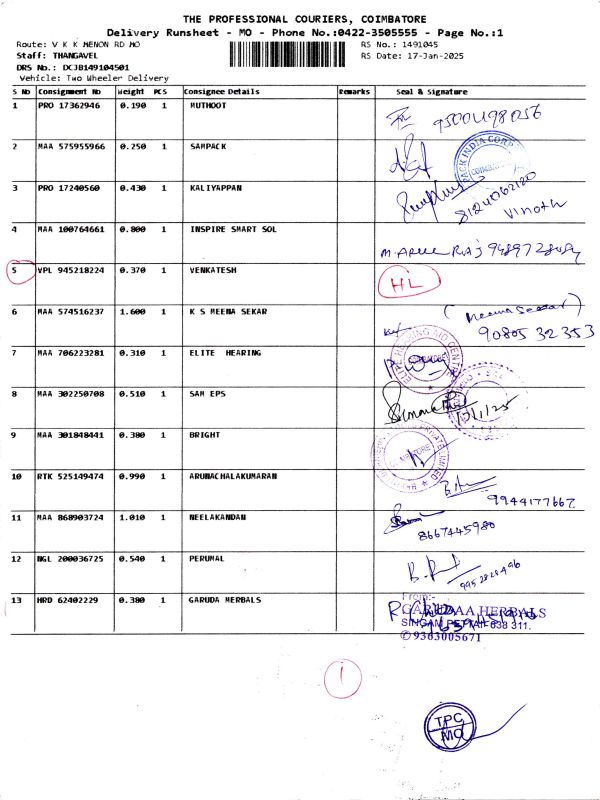 THE PROFESSIONAL COURIERS, COIMBATORE
Delivery Runsheet - MO - Phone No.:0422-3505555 - Page No.:1
Route: V K K MENON RD MO
RS No.: 1491045
Staff: THANGAVEL
RS Date: 17-Jan-2025
DRS No.: DCJB149104501
Vehicle: Two Wheeler Delivery
S No Consignment No Weight PCS Consignee Details Remarks Seal & Signature
1 PRO 17362946 0.190 1 MUTHOOT
2 MAA 575955966 0.250 1 SAMPACK
3 PRO 17240560 0.430 1 KALIYAPPAN 8124062120 Vinoth
4 MAA 100764661 0.800 1 INSPIRE SMART SOL
5 VPL 945218224 0.370 1 VENKATESH HL
6 MAA 574516237 1.600 1 K S MEENA SEKAR (Meena Sekar) 90805 32353
7 MAA 706223281 0.310 1 ELITE HEARING
8 MAA 302250708 0.510 1 SAM EPS
9 MAA 301848441 0.380 1 BRIGHT
10 RTK 525149474 0.990 1 ARUNACHALAKUMARAN 9944177667
11 MAA 868903724 1.010 1 NEELAKANDAN 8667445980
12 NGL 200036725 0.540 1 PERUMAL
13 HRD 62402229 0.380 1 GARUDA HERBALS
From:-
GARUDAA HERBALS
638 311.
✆ 9363005671
1
TPC
MO